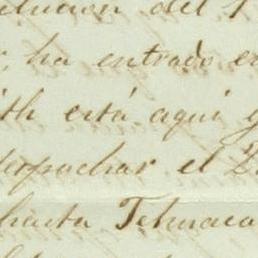 del
ha entrado en
está aquí y
despachar el
hasta Tehuaca